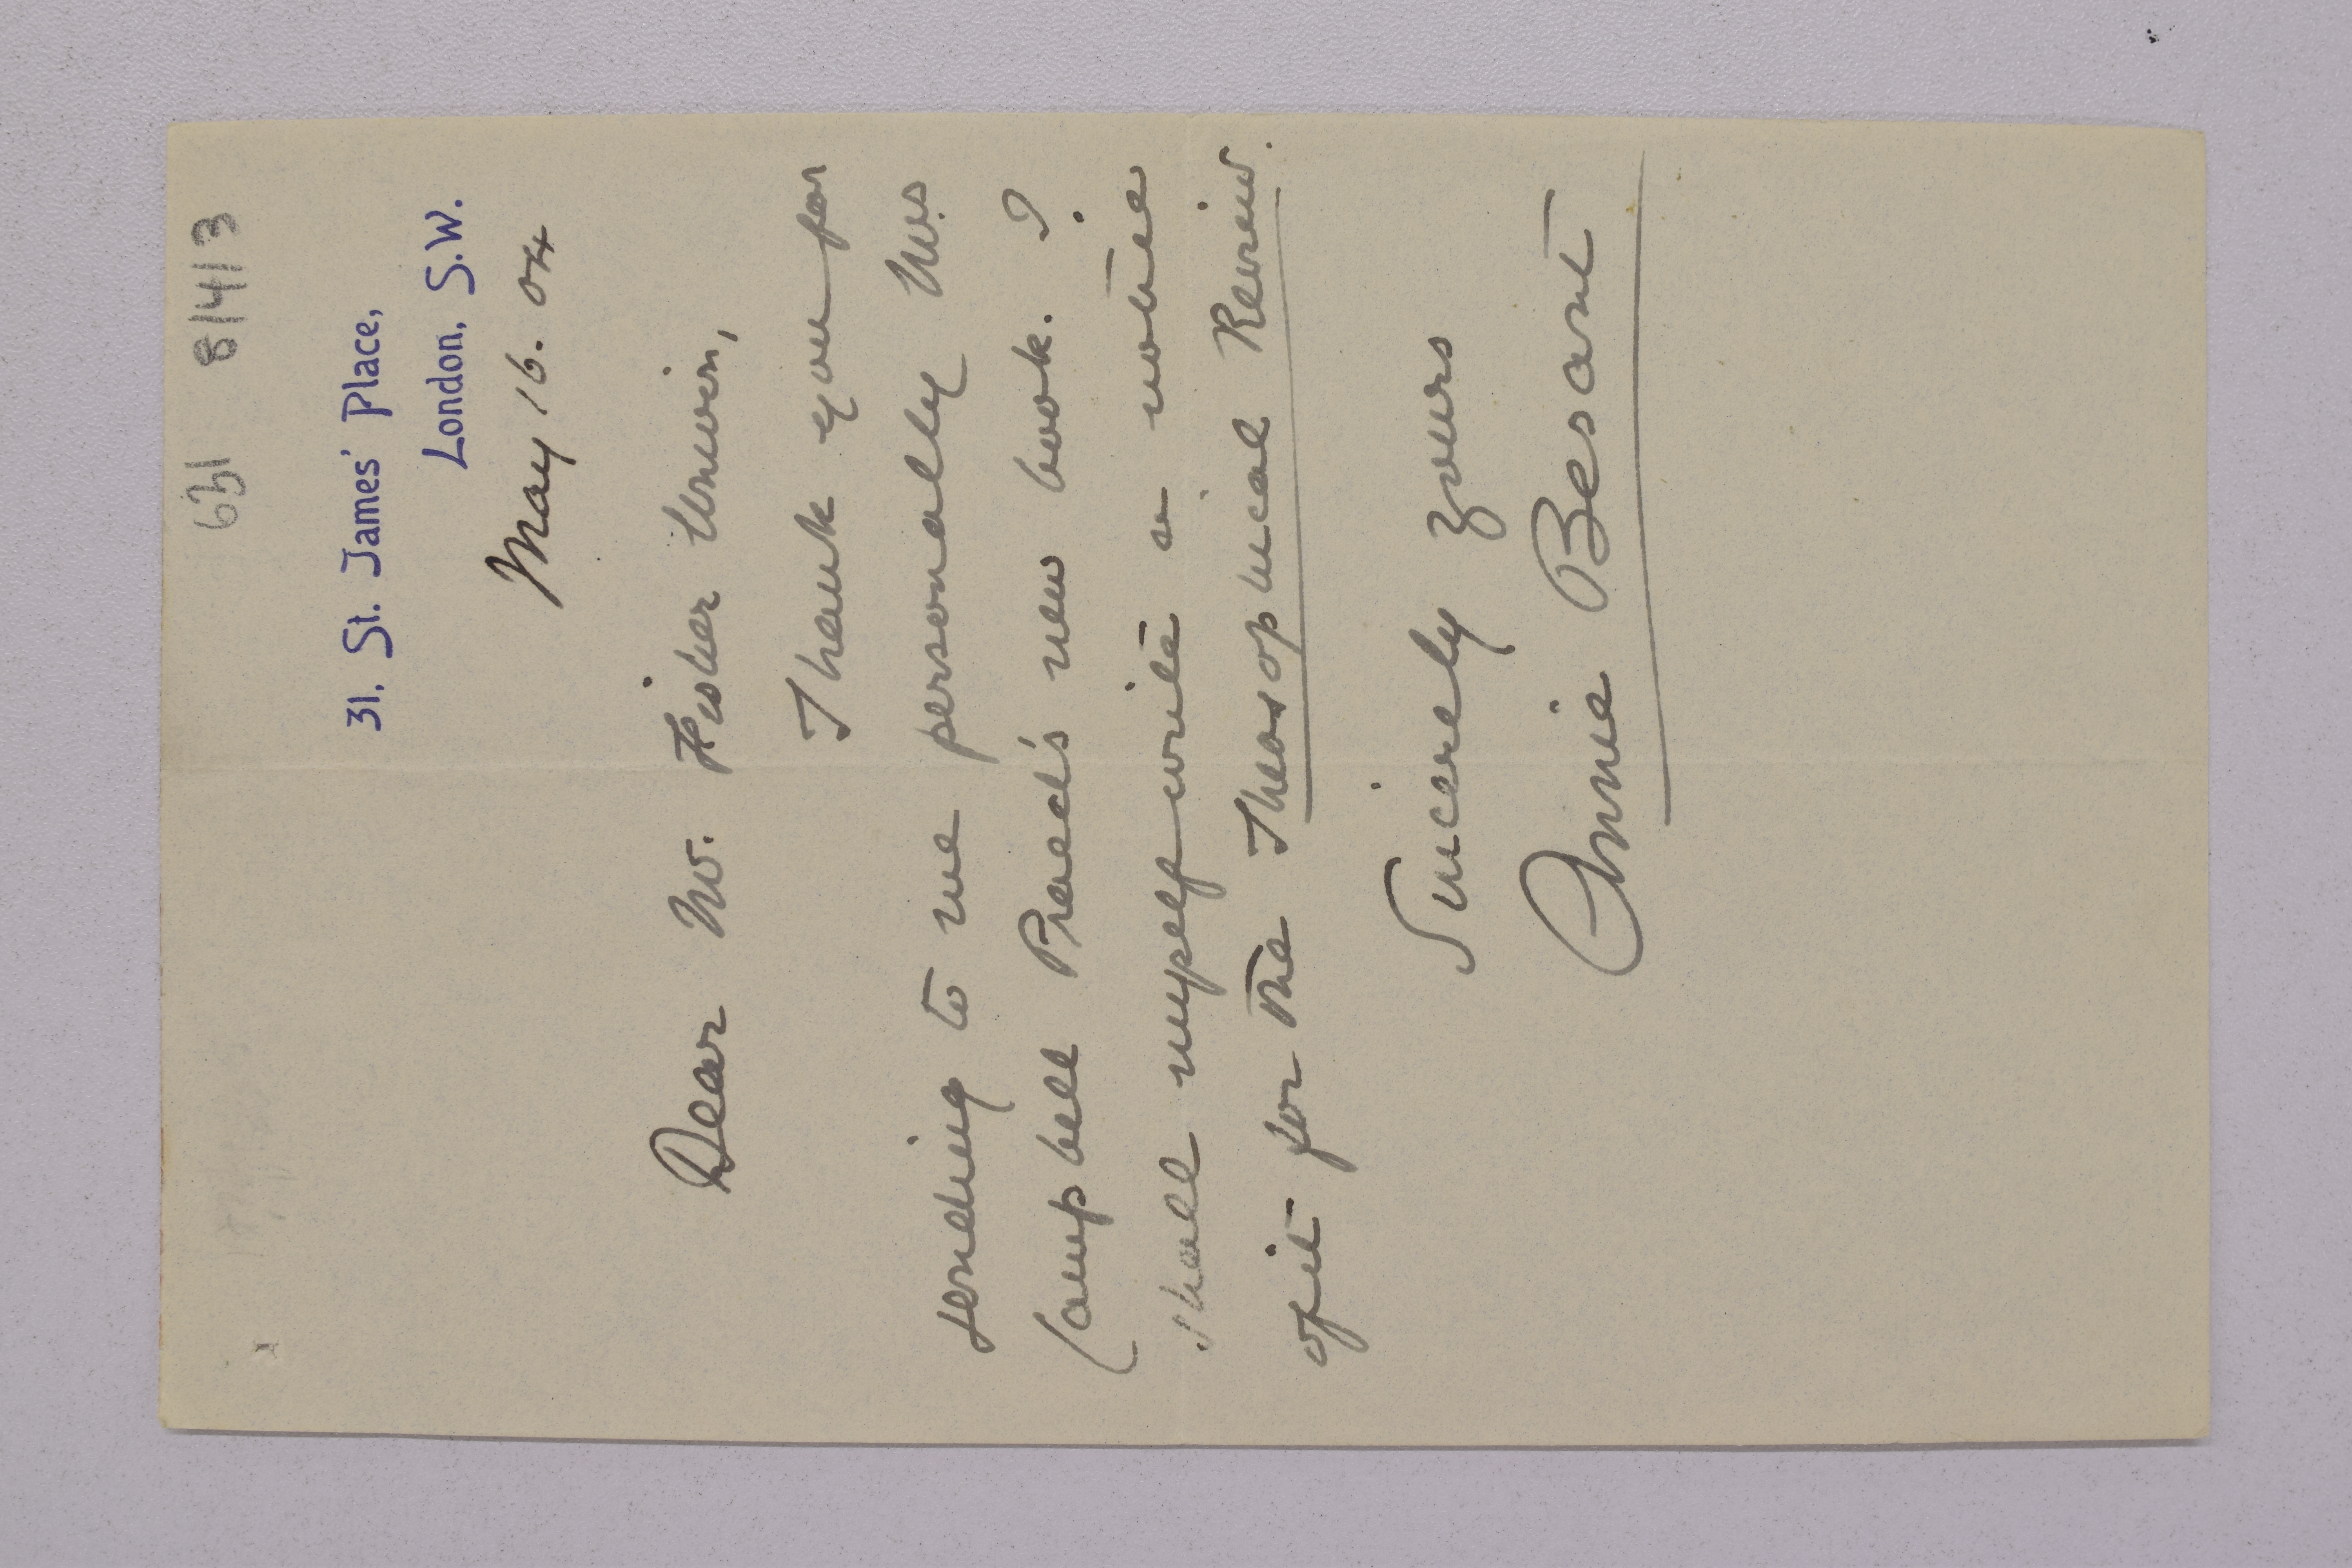 631 81413
31, St. James' Place,
London, S.W.
May 16. 04
Dear Mr. Fisher Unwin,
Thank you for
sending to me personally Mrs
Campbell Praed's new book. I
shall myself write a notice
of it for the Theosophical Review.
Sincerely yours
Annie Besant